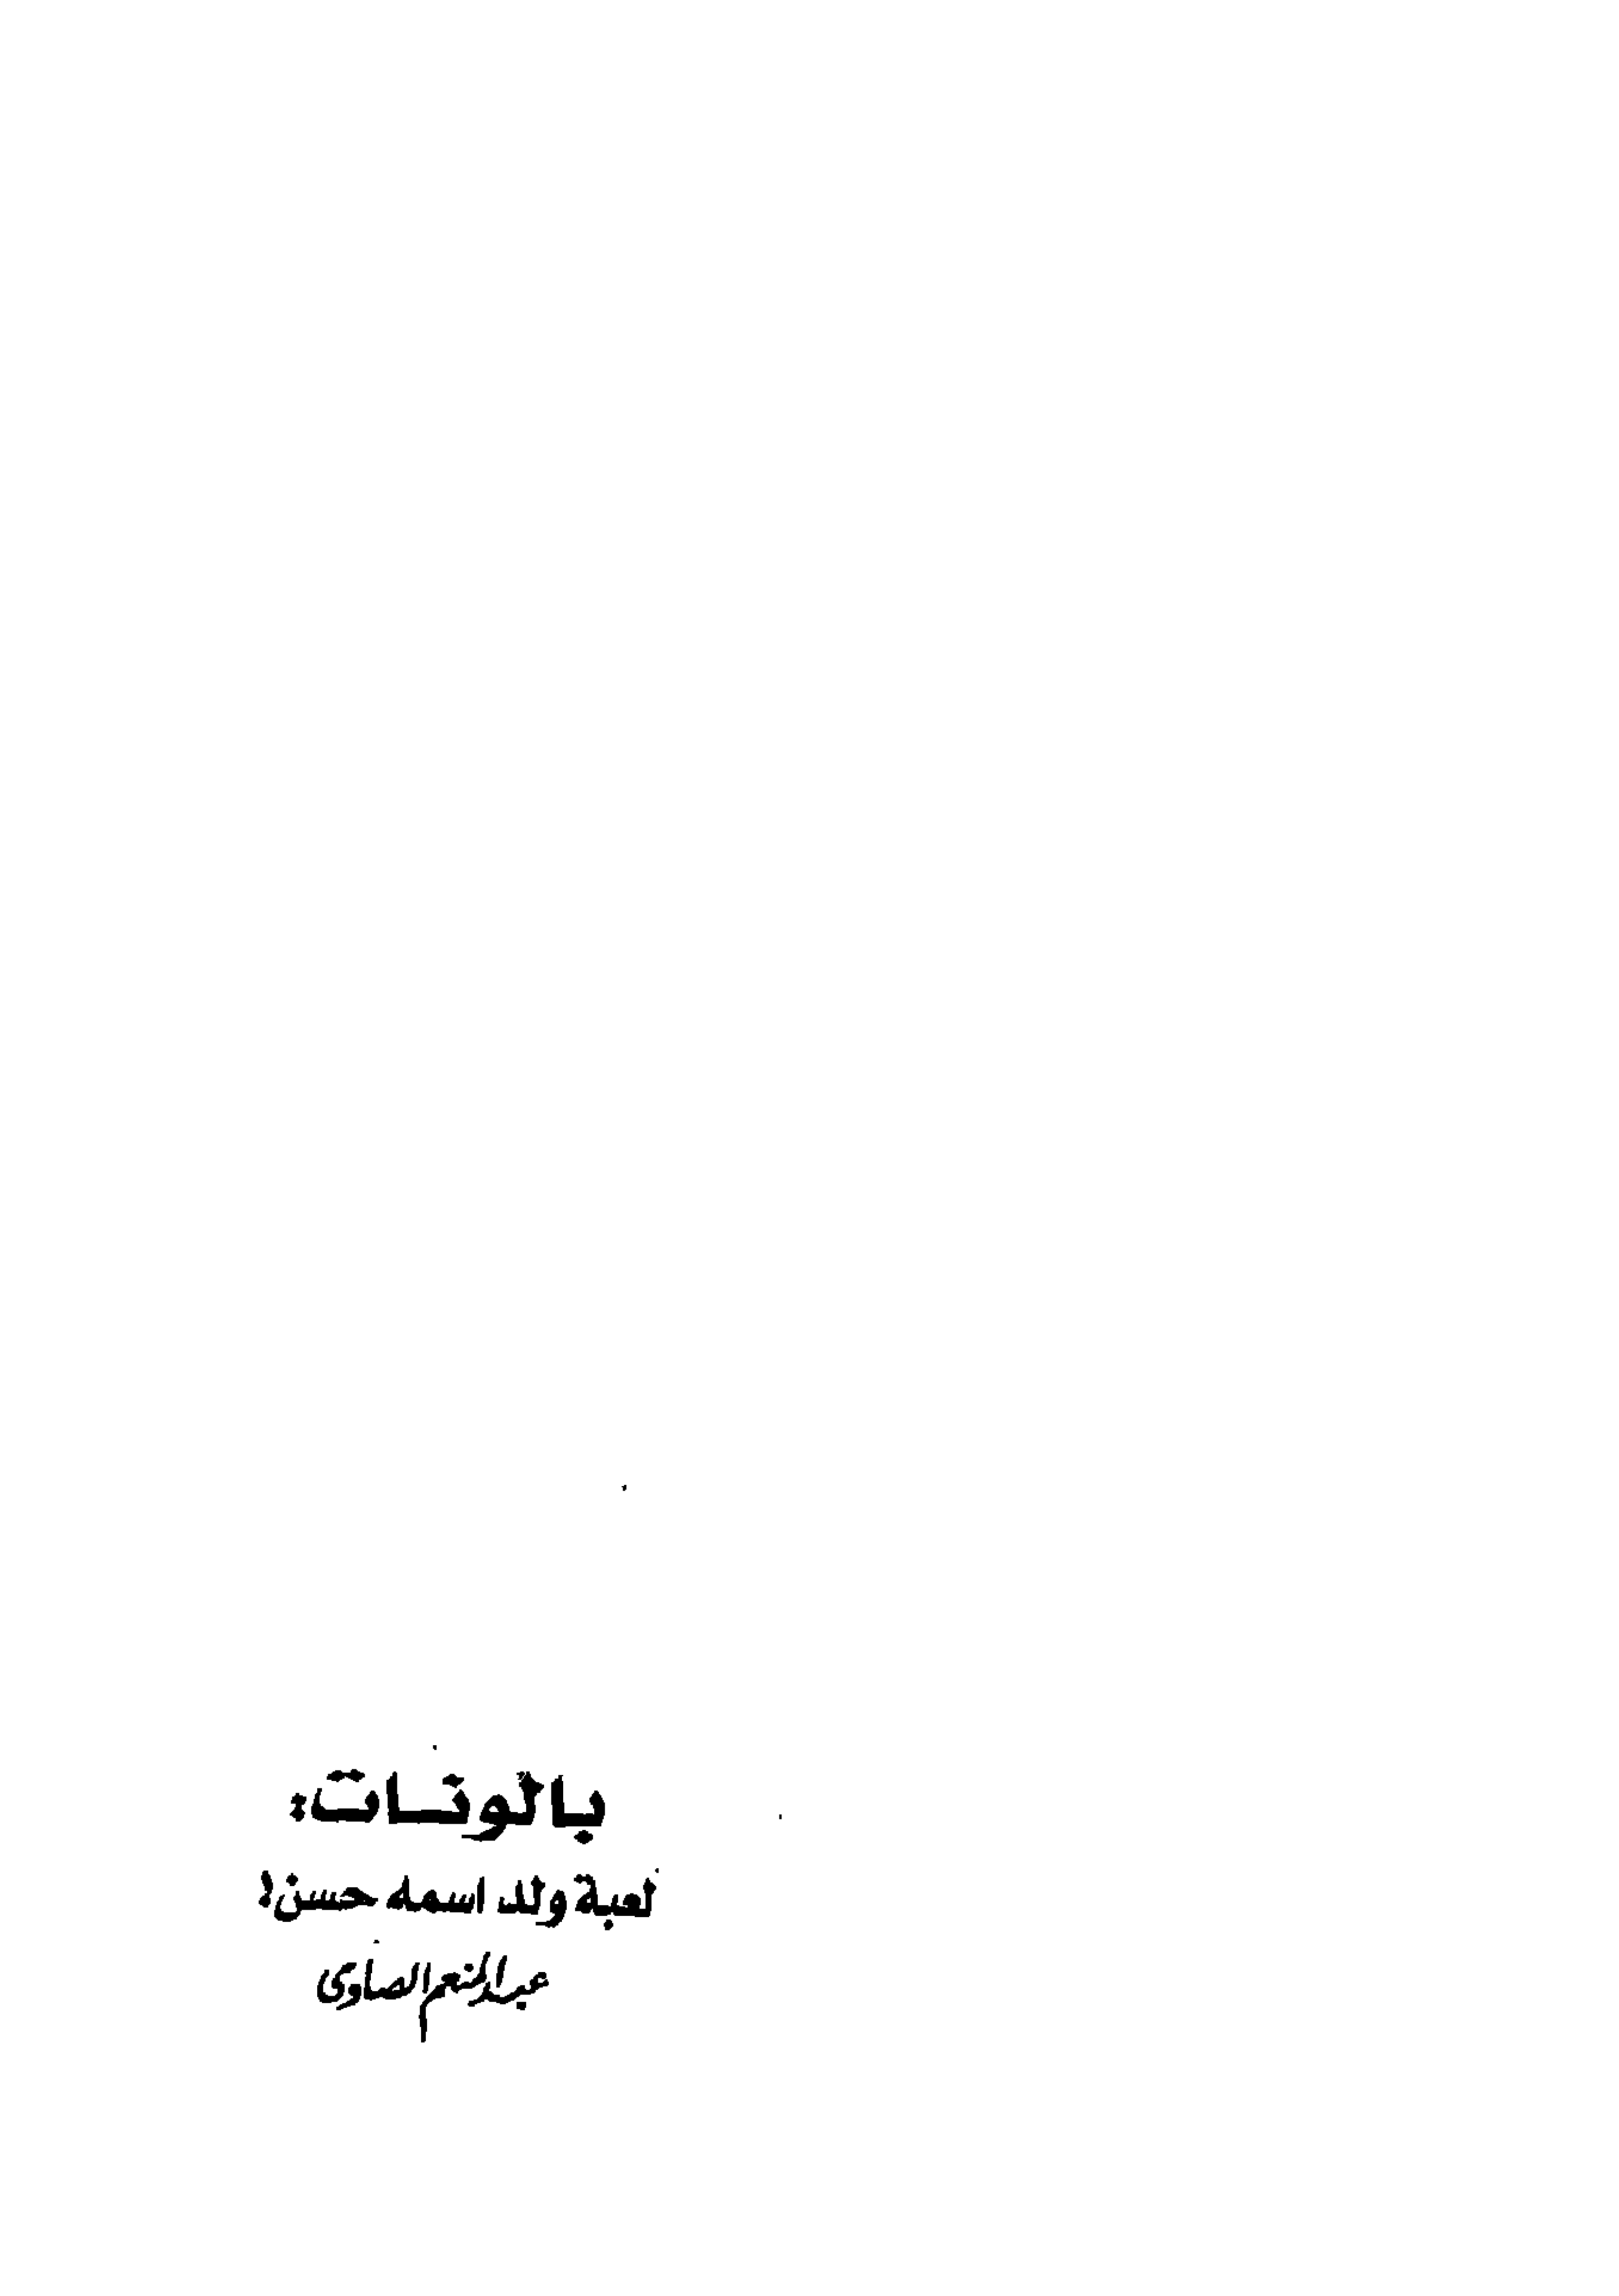 بالونات،
لعبة ولد اسمه حسن!
عبد المنعم الصاوى